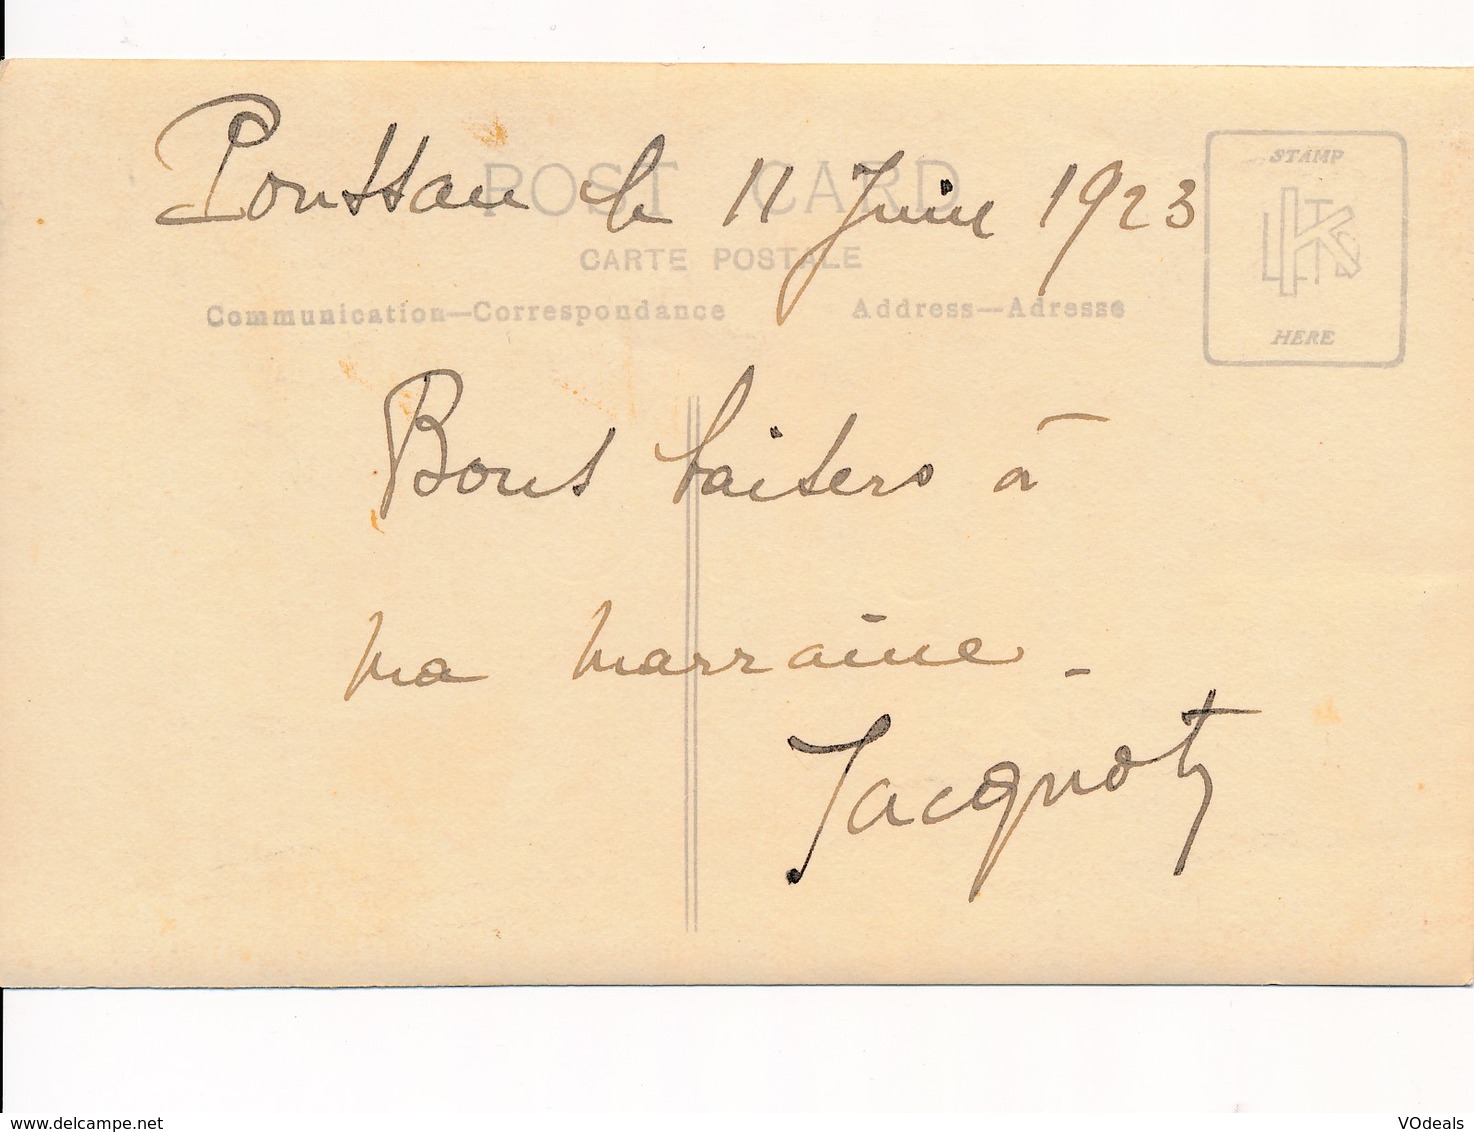 Poussan le 11 Juin 1923
POST CARD
CARTE POSTALE
Communication—Correspondance
Address—Adresse
STAMP
LTS
K
HERE
Bons baisers à
ma marraine -
Jacquot
www.delcampe.net
VOdeals